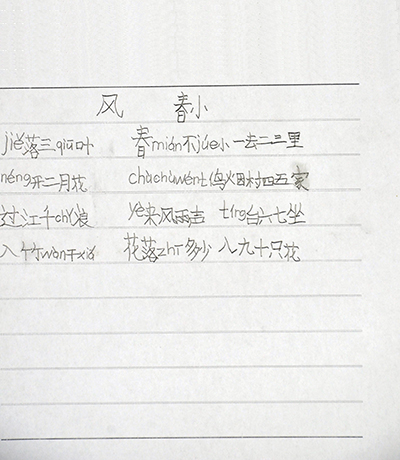 风 春小
jiě落三qiū叶 春mián不júe小 一去二三里
néng开二月花 chùchùwéntí鸟 烟村四五家
过江千chǐ浪 yè来风雨声 tíng台六七坐
入竹wàn干xiá 花落zhī多少 八九十只花